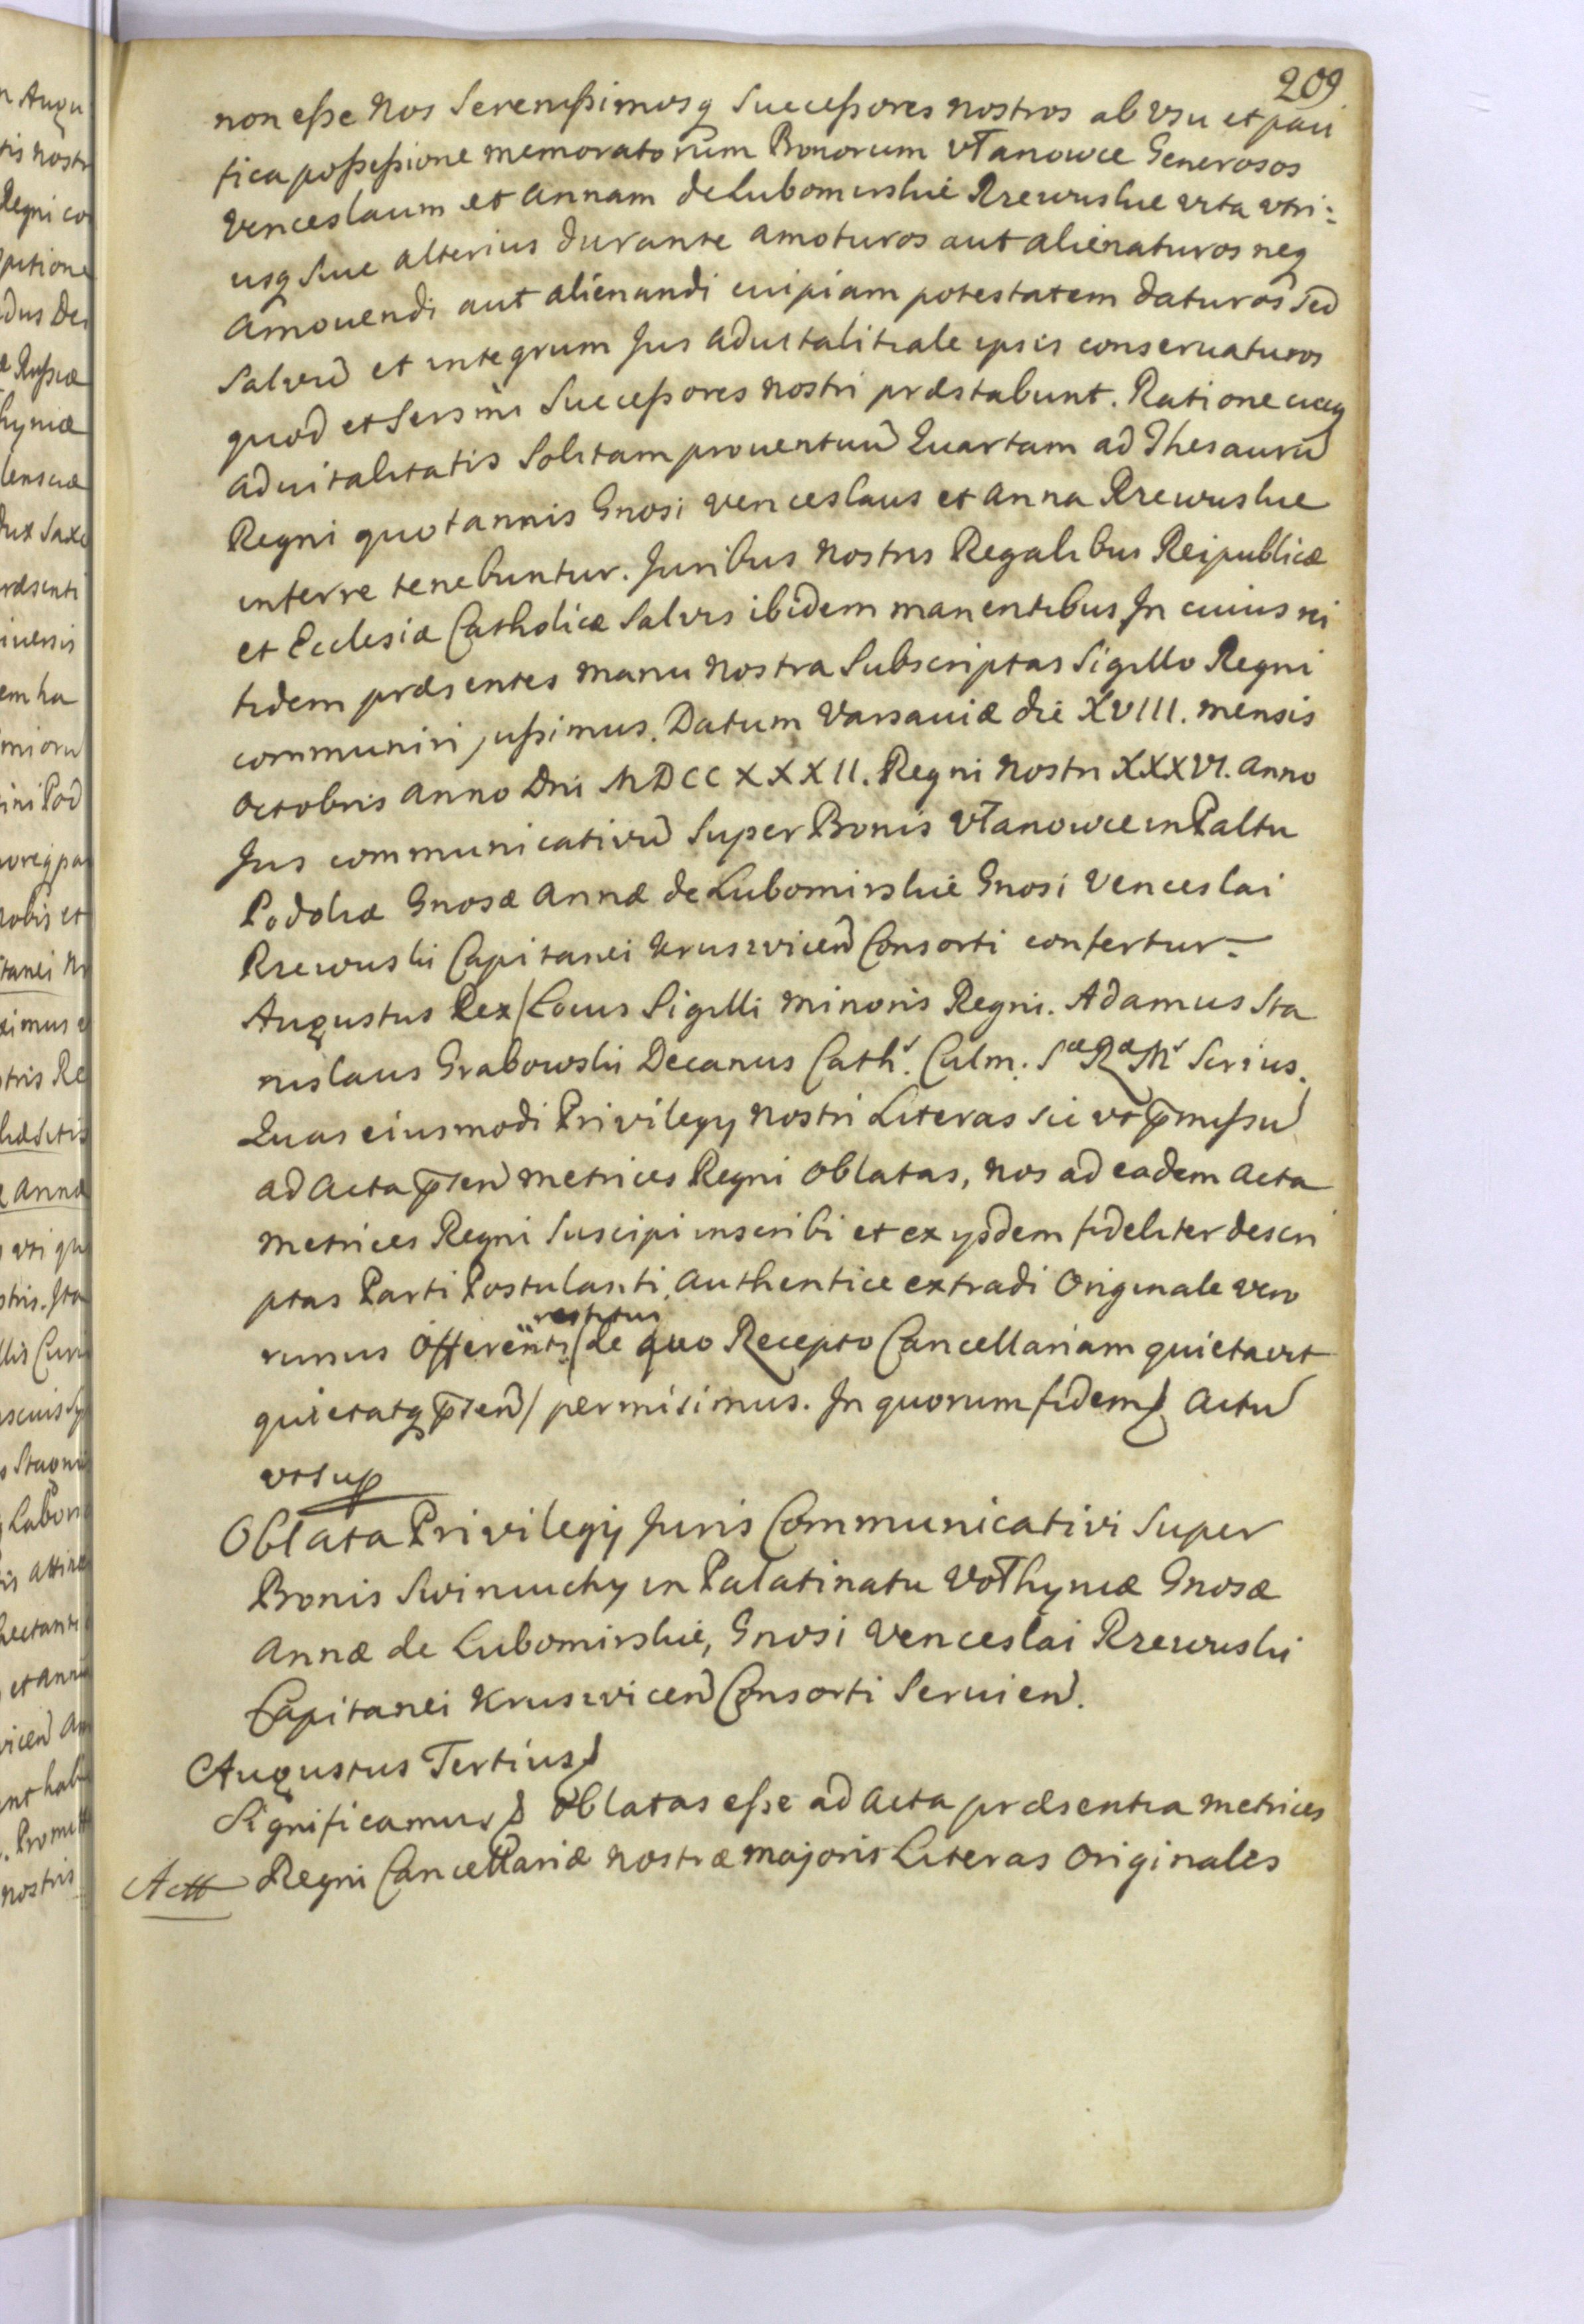 209
non eße Nos Serenißimosq Succeßores nostros ab vsu et paci
fica poßeßione memoratorum Bonorum Vłanowce Generosos
Venceslaum et Annam de Lubomirskie Rzewuskie vita vtri:
usq Sive alterius durante amoturos aut alienaturos neq
amouendi aut alienandi cuipiam potestatem daturos Sed
Salvū et integrum Jus aduitalitiale ipsis conseruaturos
quod et Sersm̄i Succeßores nostri præstabunt. Ratione cuiq
aduitalitatis Solitam prouentuū Quartam ad Thesaurū
Regni quotannis Gnosi Venceslaus et Anna Rzewuskie
inferre tenebuntur. Juribus nostris Regalibus Reipublicæ
et Ecclesiæ Catholicæ Salvis ibidem manentibus In cuius rei
fidem præsentes manu nostra Subscriptas Sigillo Regni
communiri jußimus. Datum Varsaviæ die XVIII. mensis
Octobris Anno Dni MDCCXXXII. Regni Nostri XXXVI. anno
Jus communicativū Super Bonis Vłanowce in Paltu
Podoliæ Gnosæ Annæ de Lubomirskie Gnosi Venceslai
Rzewuski Capitanei Kruszvicen̄ Consorti confertur–
Augustus Rex/Locus Sigilli minoris Regni. Adamus Sta
nislaus Grabowski Decanus Cath: Culm: Sæ Ræ Mˢ Scrius.
Quas eiusmodi Privilegÿ nostri Literas sic vt p̄mißū
ad Acta p̄sen̄ metrices Regni oblatas, nos ad eadem Acta
metrices Regni Suscipi inscribi et ex ÿsdem fideliter descri
ptas Parti Postulanti Authentice extradi Originale vero
restitui
rursus Offerenti/de quo Recepto Cancellariam quietavit
quietatq p̄sen̄/permisimus. In quorum fidem Actū
vt Sup
Oblata Privilegÿ Juris Communicativi Super
Bonis Swiniuchy in Palatinatu Vołhyniæ Gnosæ
Annæ de Lubomirskie, Gnosi Venceslai Rzewuski
Capitanei Kruszvicen̄ Consorti Seruien̄.
Augustus Tertius
Significamus Oblatas eße ad Acta præsentia metrices
Regni Cancellariæ nostræ majoris Literas Originales